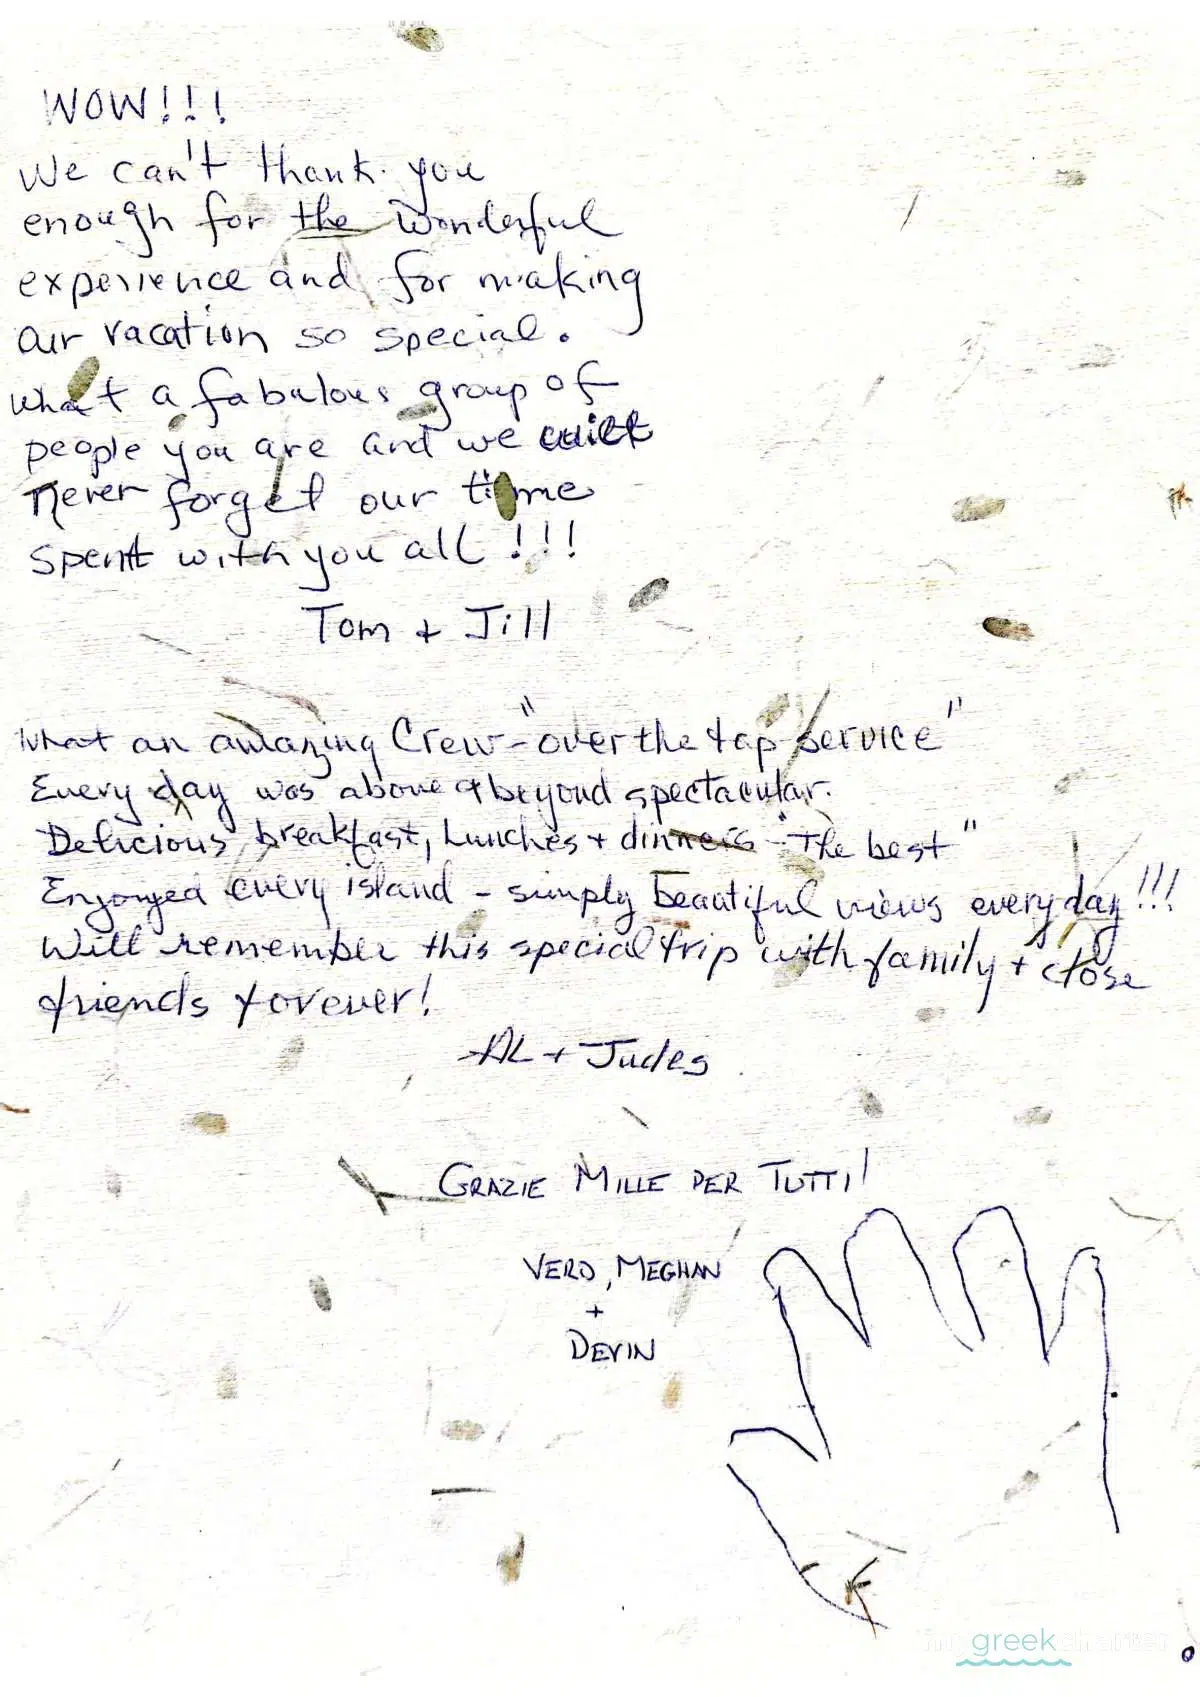 WOW!!!
We can't thank you
enough for the wonderful
experience and for making
our vacation so special.
What a fabulous group of
people you are and we will
never forget our time
spent with you all!!!
Tom + Jill
What an amazing Crew - "over the top service"
Every day was above & beyond spectacular.
Delicious breakfast, Lunches + dinners - "The best"
Enjoyed every island - simply beautiful views everyday!!!
Will remember this special trip with family + close
friends forever!
AL + Judes
GRAZIE MILLE PER TUTTI!
VERO, MEGHAN
+
DEVIN
my greek charter